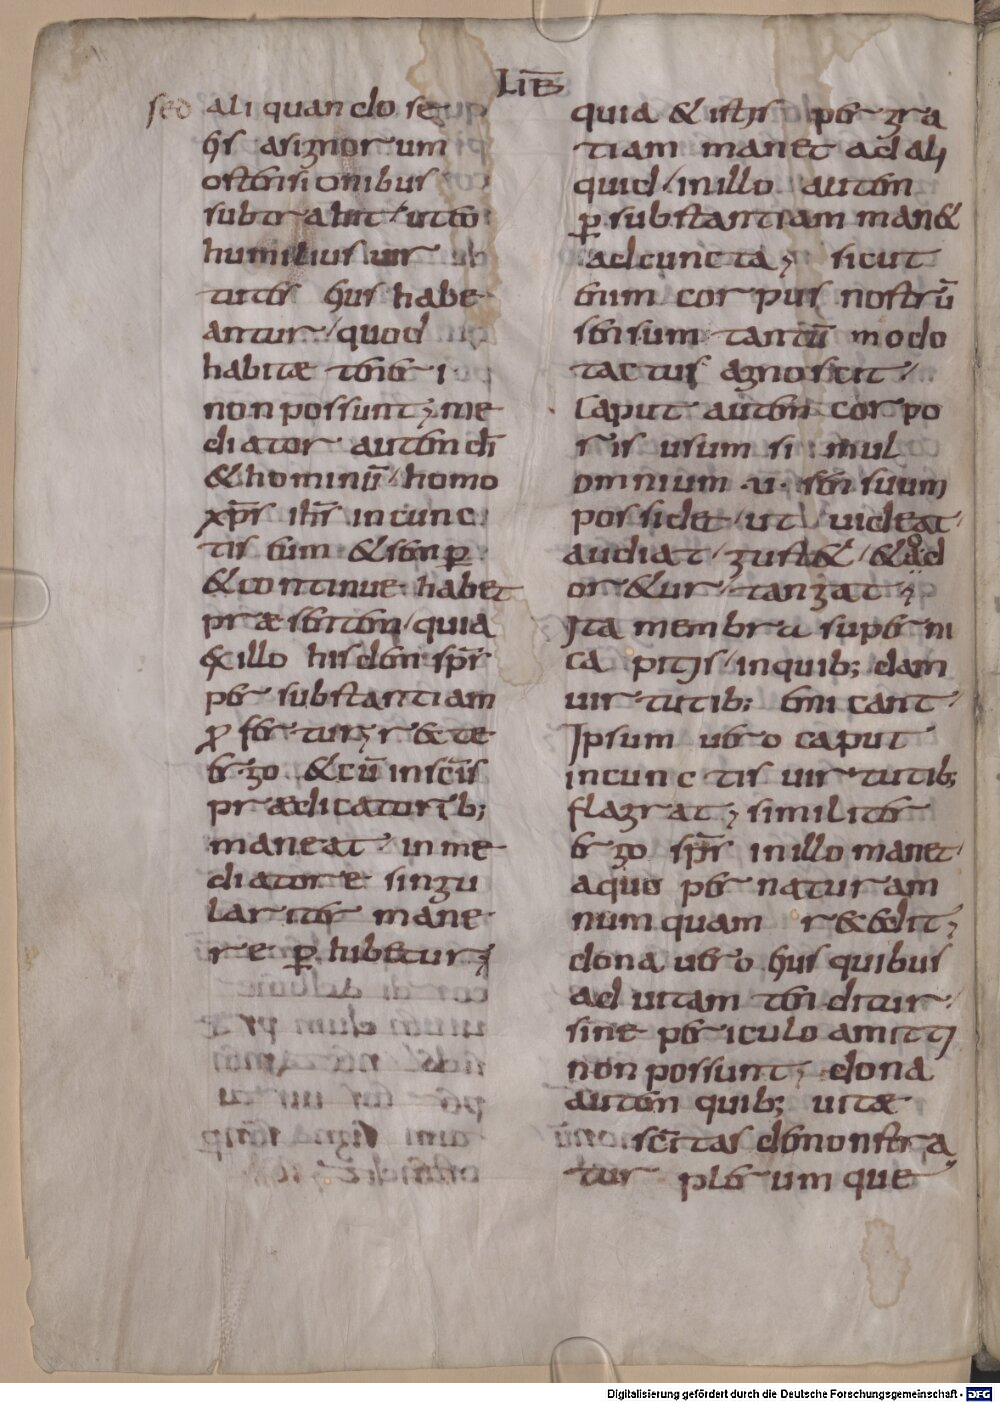 LIB̄
sed aliquando se
eis a signorum
ostensionibus
subtrahit / ut eo
humilius uir
tutes eius habe
antur / quod
habitae teneri
non possunt; me
diator autem dī
& hominū / homo
xp̄s ih̄s in cunc
tis eum & semp̲
& continue habet
praesentem / quia
ex illo hisdem sp̄s
per substantiam
p̲fertur; recte
ergo & cū in sc̄is
praedicatorib;
maneat / in me
diatore singu
lariter mane
re p̲hibetur;
quia & istis per gra
tiam manet ad ali
quid / in illo autem
p̲ substantiam man&
ad cuncta; sicut
enim corpus nostrū
sensum tantū modo
tactus agnoscit /
Caput autem corpo
ris usum simul
omnium .u. sensuum
possidet / ut uideat /
audiat / gust& / & od
or&ur / tangat;
Ita membra superni
capitis / in quib; dam
uirtutib; emicant /
Ipsum uero caput
in cunctis uirtutib;
flagrat; similiter
ergo sp̄s in illo manet /
a quo per naturam
numquam recedit;
dona uero eius quibus
ad uitam tenditur /
sine periculo amitti
non possunt; dona
autem quib; uitae
sc̄itas demonstra
tur plerumque
Digitalisierung gefördert durch die Deutsche Forschungsgemeinschaft - DFG